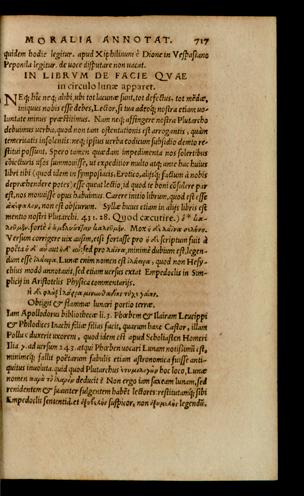 MORALIA ANNOTAT. 717
quidem hodie legitur. apud Xiphilinum è Dione in Vespasiano
Peponila legitur. de voce disputare non vacat.
IN LIBRVM DE FACIE QVAE
in circulo lunæ apparet.
NEq; hîc neq; alibi, ubi tot lacunæ sunt, tot defectus, tot mēdæ,
iniquus nobis esse debes, Lector, si tua adeoq; nostra etiam uo
luntate minus præstitimus. Nam neq; affingere nostra Plutarcho
debuimus uerba, quod non tam ostentationis est arrogantis, quàm
temeritatis insolentis: neq; ipsius uerba codicum subsidio demto re
stitui possunt. Spero tamen quædam impedimenta nos solertibus
obiecturis usses summouisse, ut expeditior multo atq; ante hac huius
libri tibi (quod idem in symposiacis, Erotico, alijsq; factum à nobis
deprehendere potes) esse queat lectio, id quod te boni cōsulere par
est, nos monuisse opus habuimus. Carere initio librum, quod est esse
non est obscurum. Syllæ huius etiam in alijs libris est
mentio nostri Plutarchi. 431.28. Quod cæcutire.)
forte Mox
Versum corrigere uix ausim, etsi fortasse pro scriptum fuit à
poëta sed pro minimè dubium est legen-
dum esse Lunæ enim nomen est quod non Hesy-
chius modò annotauit, sed etiam uersus extat Empedoclis in Sim-
plicij in Aristotelis Physica commentarijs.
Obtigit & flammæ lunari portio terræ.
Iam Apollodorus bibliothecæ li.3. Phæbem & Ilairam Leucippi
& Philodices Inachi filiæ filias facit, quarum hanc Castor, illam
Pollux duxerit uxorem, quod idem est apud Scholiasten Homeri
Ilia γ. ad uersum 243. atqui Phœben uocari Lunam notissimū est,
minimeq; fallit poëtarum fabulis etiam astronomica fuisse anti-
quitus inuoluta. quid quod Plutarchus hoc loco, Lunæ
nomen deducit? Non ergo iam saxeam lunam, sed
renidentem & suauiter fulgentem habēt lectores: restitutamq; sibi
Empedoclis sententiā. et suspicor, non legendū.